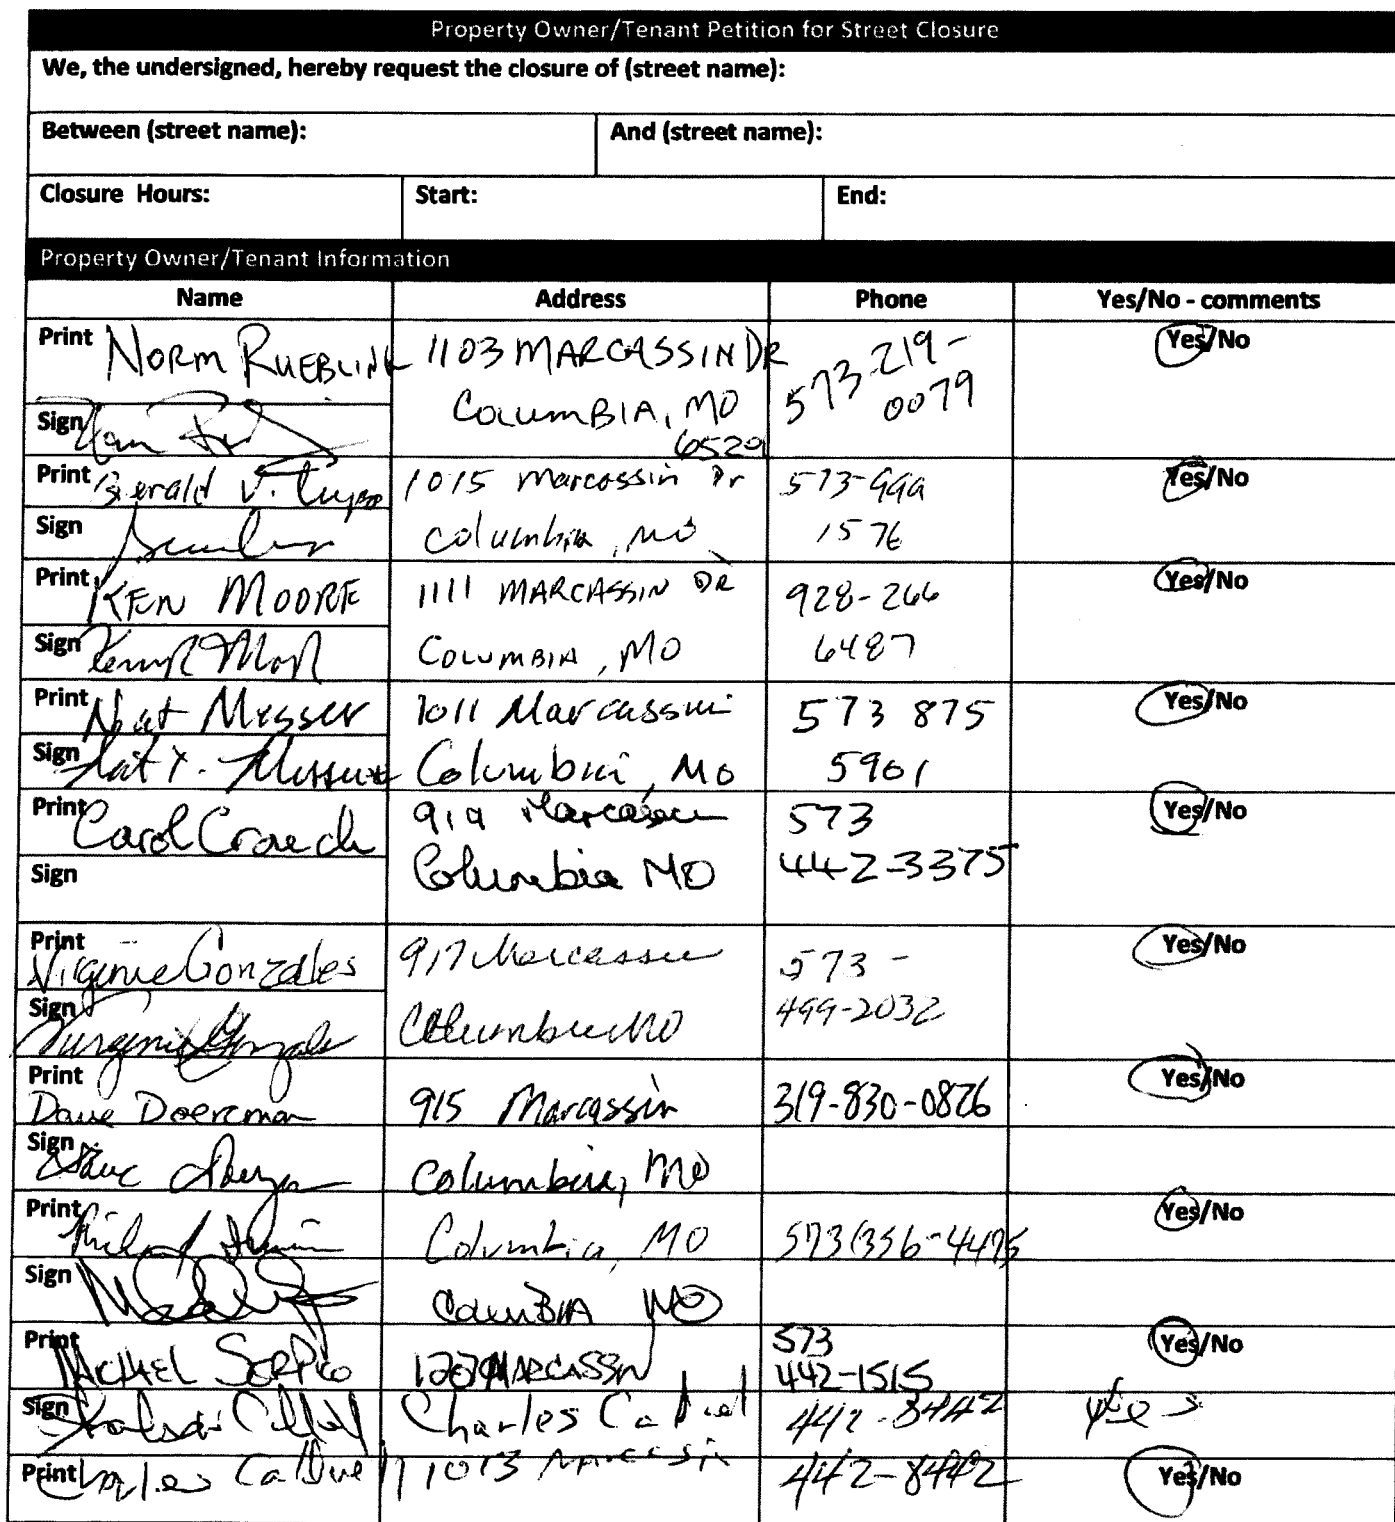 Property Owner/Tenant Petition for Street Closure
We, the undersigned, hereby request the closure of (street name):
Between (street name): And (street name):
Closure Hours: Start: End:
Property Owner/Tenant Information
Name Address Phone Yes/No - comments
Print NORM RUEBLING 1103 MARCASSIN DR 573-219- Yes/No
0079
Sign COLUMBIA, MO
6520
Print Gerald V. 1015 Marcassin Dr 573-999 Yes/No
Sign Columbia, MO 1576
Print KEN MOORE 1111 MARCASSIN DR 928-266 Yes/No
Sign COLUMBIA, MO 6487
Print Nat Messer 1011 Marcassin 573 875 Yes/No
Sign Nat T. Messer Columbia, Mo 5901
Print Carol Crouch 919 Marcassin 573 Yes/No
Sign Columbia MO 442-3375
Print Virginia Gonzales 917 Marcassin 573 - Yes/No
Sign Virginia Gonzales Columbia MO 499-2032
Print Dave Doerrman 915 Marcassin 319-830-0876 Yes/No
Sign Dave Columbia, Mo
Print Columbia, MO 573/356-4475 Yes/No
Sign COLUMBIA MO
Print MICHAEL 1207 MARCASSIN 573 Yes/No
442-1515
Sign Charles 442-8442 yes
Print Charles 1013 Marcassin 442-8442 Yes/No